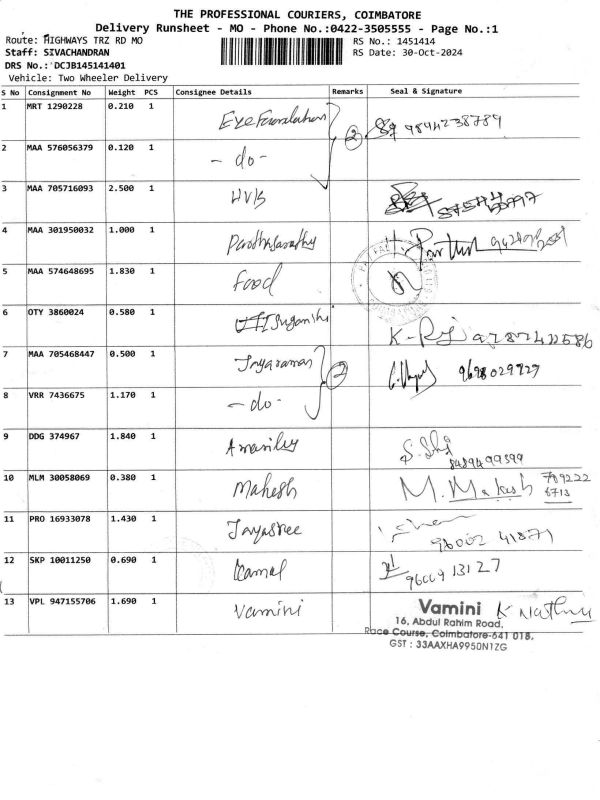 THE PROFESSIONAL COURIERS, COIMBATORE
Delivery Runsheet - MO - Phone No.:0422-3505555 - Page No.:1
Route: HIGHWAYS TRZ RD MO
RS No.: 1451414
Staff: SIVACHANDRAN
RS Date: 30-Oct-2024
DRS No.: DCJB145141401
Vehicle: Two Wheeler Delivery
S No Consignment No Weight PCS Consignee Details Remarks Seal & Signature
1 MRT 1290228 0.210 1 Eye Foundation 2 9894238789
2 MAA 576056379 0.120 1 - do -
3 MAA 705716093 2.500 1 HVB
4 MAA 301950032 1.000 1 Parthasarathy
5 MAA 574648695 1.830 1 Food
6 OTY 3860024 0.580 1 Suganthi
7 MAA 705468447 0.500 1 Jayaraman 2 9698029727
8 VRR 7436675 1.170 1 - do -
9 DDG 374967 1.840 1
10 MLM 30058069 0.380 1 Mahesh M. Makesh 789222
6713
11 PRO 16933078 1.430 1 Jayasree 96002 41871
12 SKP 10011250 0.690 1 Kamal
13 VPL 947155706 1.690 1 Vamini
Vamini
16, Abdul Rahim Road,
Race Course, Coimbatore-641 018,
GST : 33AAXHA9950N1ZG